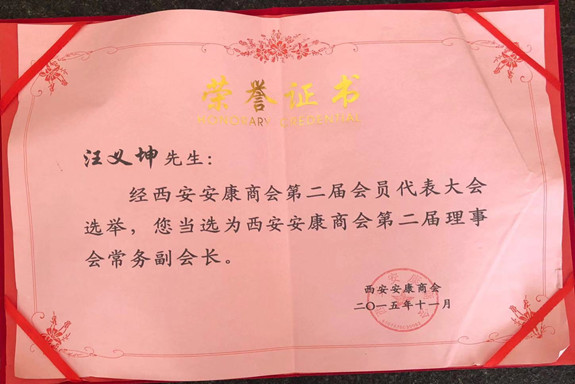 荣誉证书
HONORARY CREDENTIAL
汪义坤先生:
经西安安康商会第二届会员代表大会
选举，您当选为西安安康商会第二届理事
会常务副会长。
西安安康商会
二〇一五年十一月